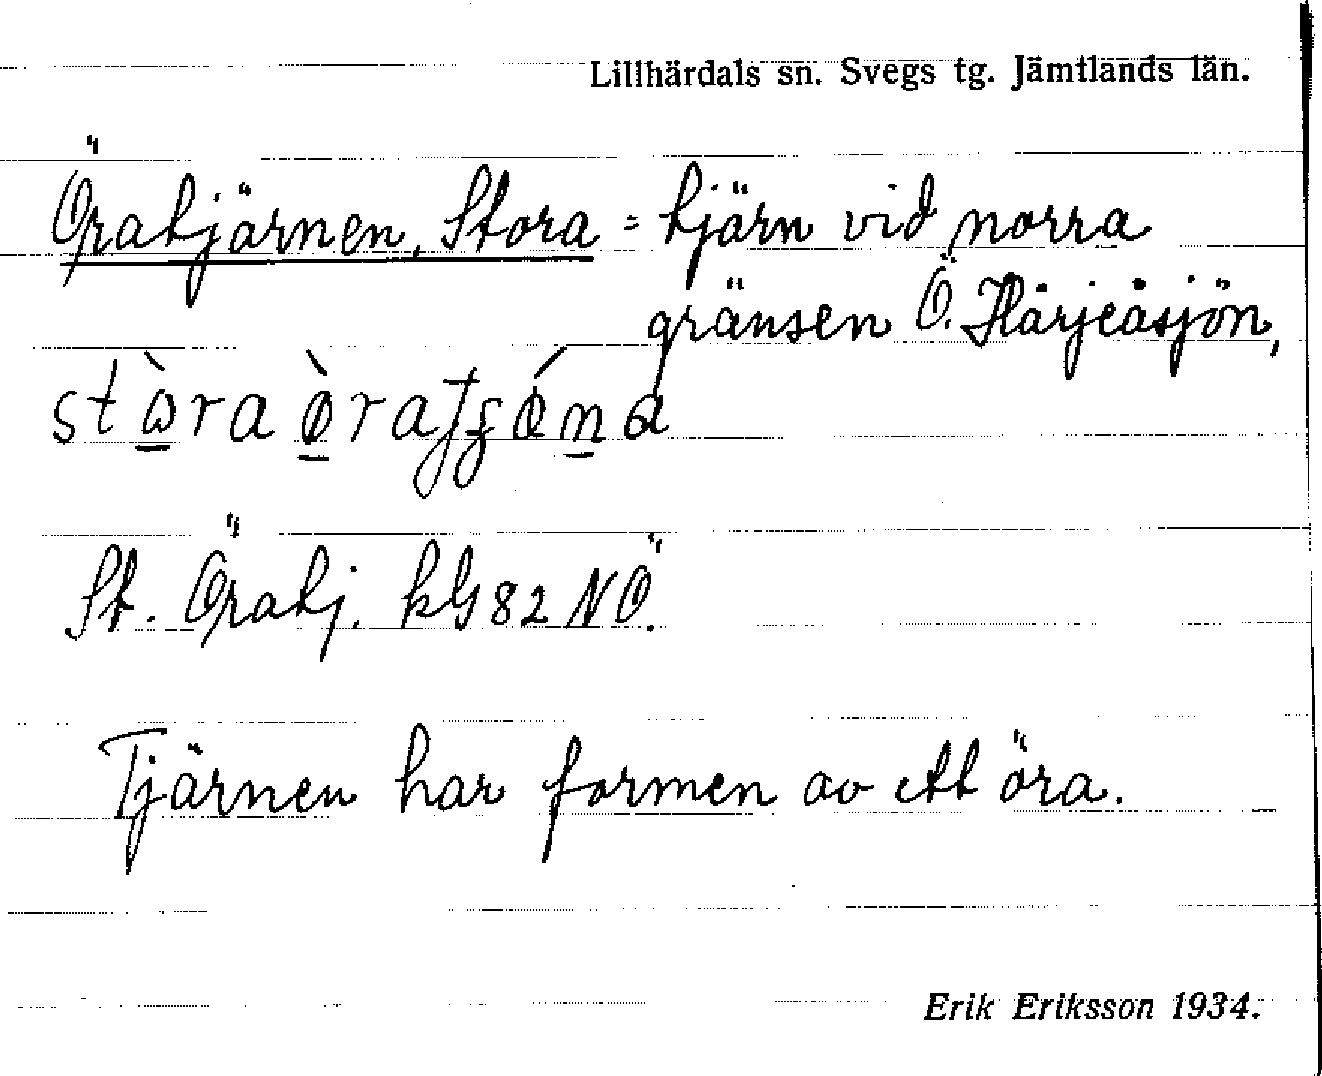 Lillhärdals sn. Svegs tg. Jämtlands län.
Öratjärnen, Stora = tjärn vid norra
gränsen Ö. Härjeåsjön,
St. Öratj. kG 82 NÖ.
Tjärnen har formen av ett öra.
Erik Eriksson 1934.